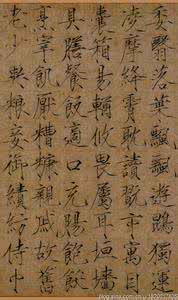 委翳落葉飄颻遊鵾獨運
凌摩絳霄耽讀翫市寓目
囊箱易輶攸畏屬耳垣墻
具膳餐飯適口充腸飽飫
亨宰飢厭糟糠親戚故舊
老少異糧妾御績紡侍巾